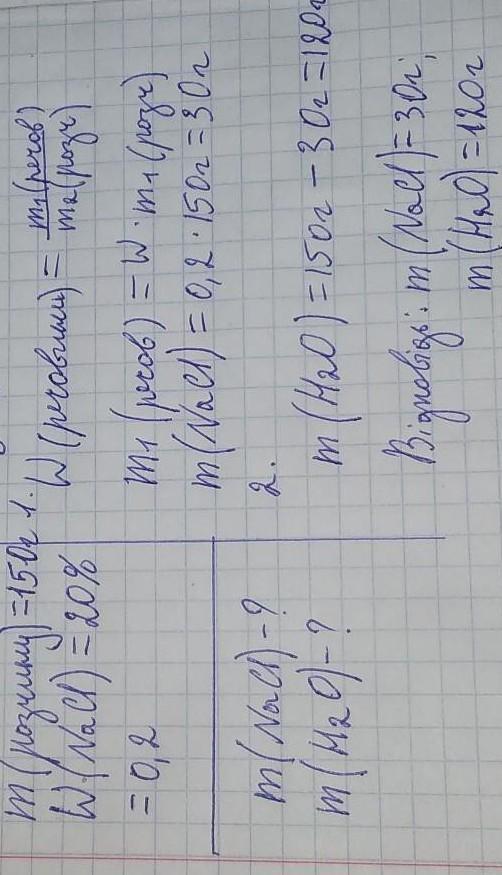 m(розчину)=150г
W(NaCl)=20%
=0,2
m(NaCl)-?
m(H2O)-?
1. W(речовини)=m1(речов)/m2(розч)
m1(речов)=W·m1(розч)
m(NaCl)=0,2·150г=30г
2.
m(H2O)=150г-30г=120г
Відповідь: m(NaCl)=30г;
m(H2O)=120г